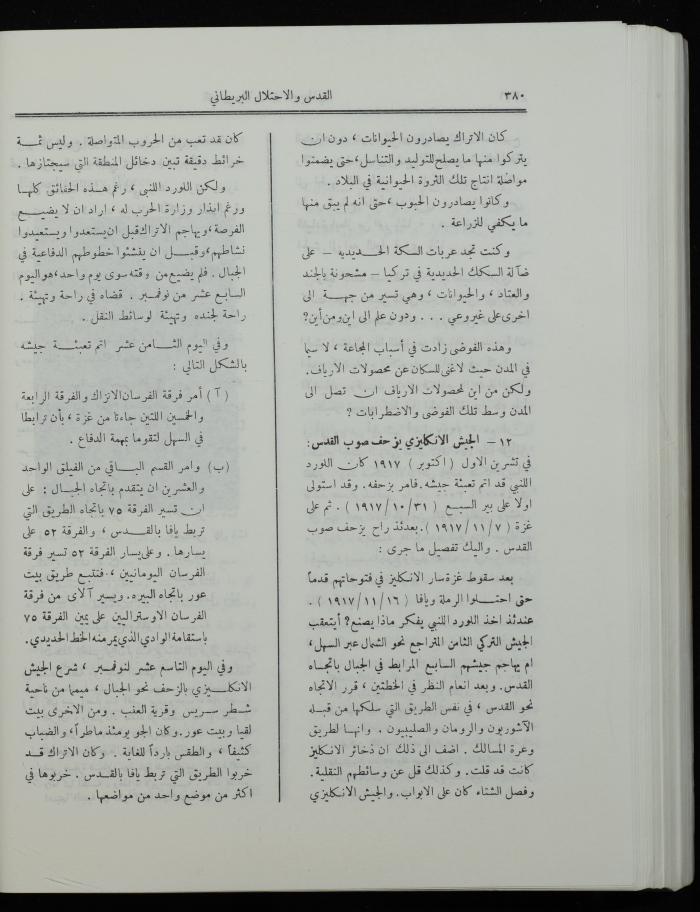 ٣٨٠
القدس والاحتلال البريطاني
كان الاتراك يصادرون الحيوانات ، دون ان
يتركوا منها ما يصلح للتوليد والتناسل،حتى يضمنوا
مواصلة انتاج تلك الثروة الحيوانية في البلاد .
وكانوا يصادرون الحبوب ،حتى انه لم يبق منها
ما يكفي للزراعة .
وكنت تجد عربات السكة الحـديديه – على
ضآلة السكك الحديدية في تركيا – مشحونة بالجند
والعتاد ، والحيوانات ، وهي تسير من جهـة الى
اخرى على غير وعي . . . ودون علم الى اين ومن أين؟
وهذه الفوضى زادت في أسباب المجاعة ، لا سيما
في المدن حيث لاغنى للسكان عن محصولات الارياف.
ولكن من اين لمحصولات الارياف ان تصل الى
المدن وسط تلك الفوضى والاضطرابات ؟
١٢ – الجيش الانكليزي يزحف صوب القدس:
في تشرين الاول ( اكتوبر ) ١٩١٧ كان اللورد
اللنبي قد اتم تعبئة جيشه.فامر بزحفه. وقد استولى
اولا على بير السبع ( ١٩١٧/١٠/٣١ ) . ثم على
غزة ( ١٩١٧/١١/٧ ).بعدئذ راح يزحف صوب
القدس . واليك تفصيل ما جرى :
بعد سقوط غزة سار الانكليز في فتوحاتهم قدماً
حتى احتـلوا الرملة ويافا ( ١٩١٧/١١/١٦ ) .
عندئذ اخذ اللورد اللنبي يفكر ماذا يصنع؟ أيتعقب
الجيش التركي الثامن المتراجع نحو الشمال عبر السهل،
ام يهاجم جيشهم السابع المرابط في الجبال باتجـاه
القدس. وبعد انعام النظر في الخطتين ، قرر الاتجاه
نحو القدس ، في نفس الطريق التي سلكها من قبـله
الآشوريون والرومان والصليبيون . وانهـا لطريق
وعرة المسالك . اضف الى ذلك ان ذخائر الانكليز
كانت قد قلت. وكذلك قل عن وسائطهم النقلية.
وفصل الشتاء كان على الابواب. والجيش الانكليزي
كان قد تعب من الحروب المتواصلة . وليس ثمـة
خرائط دقيقة تبين دخائل المنطقة التي سيجتازها .
ولكن اللورد اللنبي ، رغم هـذه الحقائق كلهـا
ورغم انذار وزارة الحرب له ، اراد ان لا يضيـع
الفرصة،ويهاجم الاتراك قبل ان يستعدوا ويستعيدوا
نشاطهم،وقبـل ان ينشئوا خطوطهم الدفاعية في
الجبال . فلم يضيع من وقته سوى يوم واحد،هو اليوم
السابع عشر من نوفمبر . قضاه في راحة وتهيئة .
راحة لجنده وتهيئة لوسائط النقل .
وفي اليوم الثـامن عشر اتم تعبئـة جيشه
بالشكل التالي :
( آ ) أمر فرقة الفرسان الانزاك والفرقة الرابعة
والخمسين اللتين جاءتا من غزة ، بأن ترابطا
في السهل لتقوما بمهمة الدفاع .
(ب) وامر القسم البـاقي من الفيلق الواحد
والعشرين ان يتقدم باتجاه الجبـال : على
ان تسير الفرقة ٧٥ باتجاه الطريق التي
تربط يافا بالقـدس ، والفرقة ٥٢ على
يسارها . وعلى يسار الفرقة ٥٢ تسير فرقة
الفرسان اليومانيين ، فتتبع طريق بيت
عور باتجاه البيره. ويسير آلاى من فرقة
الفرسان الاوستراليين على يمين الفرقة ٧٥
باستقامة الوادي الذي يمر منه الخط الحديدي.
وفي اليوم التاسع عشر لنوفمبر ، شرع الجيش
الانكلـيزي بالزحف نحو الجبال ، ميمما من ناحية
شـطر سريس وقرية العنب . ومن الاخرى بيت
لقيا وبيت عور.وكان الجو يومئذ ماطراً، والضباب
كثيفاً ، والطقس بارداً للغاية . وكان الاتراك قـد
خربوا الطريق التي تربط يافا بالقـدس . خربوها في
اكثر من موضع واحد من مواضعها .